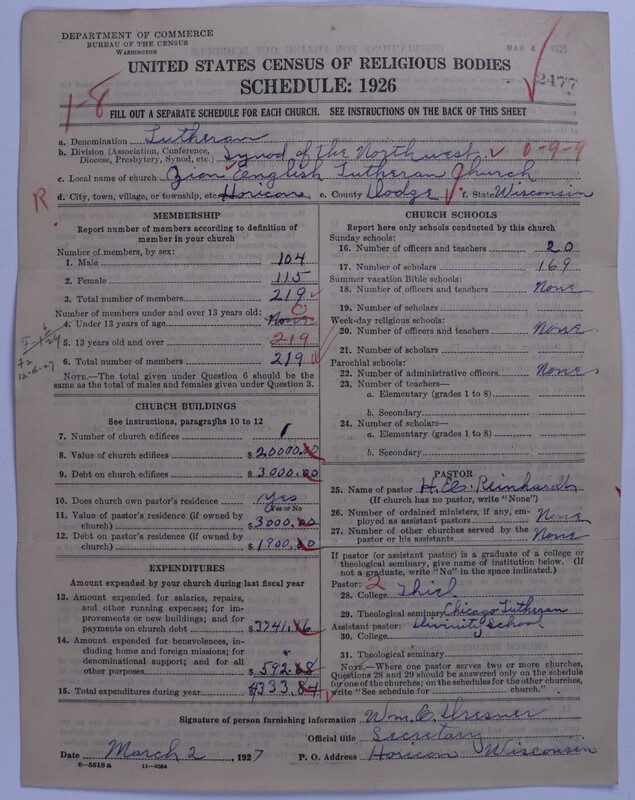 DEPARTMENT OF COMMERCE
BUREAU OF THE CENSUS
WASHINGTON
UNITED STATES CENSUS OF RELIGIOUS BODIES
SCHEDULE: 1926
2477
1-8
FILL OUT A SEPARATE SCHEDULE FOR EACH CHURCH. SEE INSTRUCTIONS ON THE BACK OF THIS SHEET
a. Denomination Lutheran
b. Division (Association, Conference,
Diocese, Presbytery, Synod, etc.) Synod of the Northwest 0-9-9
c. Local name of church Zion English Lutheran Church
d. City, town, village, or township, etc. Horicon e. County Dodge f. State Wisconsin
R
MEMBERSHIP
Report number of members according to definition of
member in your church
Number of members, by sex:
1. Male 104
2. Female 115
3. Total number of members 219
Number of members under and over 13 years old:
4. Under 13 years of age None 0
5. 13 years old and over 219
6. Total number of members 219
12-16-27
NOTE.—The total given under Question 6 should be
the same as the total of males and females given under Question 3.
CHURCH BUILDINGS
See instructions, paragraphs 10 to 12
7. Number of church edifices 1
8. Value of church edifices $ 20000.00
9. Debt on church edifices $ 3000.00
10. Does church own pastor's residence yes
(Yes or No)
11. Value of pastor's residence (if owned by
church) $ 3000.00
12. Debt on pastor's residence (if owned by
church) $ 1900.00
EXPENDITURES
Amount expended by your church during last fiscal year
13. Amount expended for salaries, repairs,
and other running expenses; for im-
provements or new buildings; and for
payments on church debt $ 3741.16
14. Amount expended for benevolences, in-
cluding home and foreign missions; for
denominational support; and for all
other purposes $ 592.68
15. Total expenditures during year $ 4333.84
CHURCH SCHOOLS
Report here only schools conducted by this church
Sunday schools:
16. Number of officers and teachers 20
17. Number of scholars 169
Summer vacation Bible schools:
18. Number of officers and teachers None
19. Number of scholars
Week-day religious schools:
20. Number of officers and teachers None
21. Number of scholars
Parochial schools:
22. Number of administrative officers None
23. Number of teachers—
a. Elementary (grades 1 to 8)
b. Secondary
24. Number of scholars—
a. Elementary (grades 1 to 8)
b. Secondary
PASTOR
25. Name of pastor Reinhardt
(If church has no pastor, write "None")
26. Number of ordained ministers, if any, em-
ployed as assistant pastors None
27. Number of other churches served by the
pastor or his assistants None
If pastor (or assistant pastor) is a graduate of a college or
theological seminary, give name of institution below. (If
not a graduate, write "No" in the space indicated.)
Pastor: 2
28. College Thiel
29. Theological seminary Chicago Lutheran
Assistant pastor: Divinity School
30. College
31. Theological seminary
NOTE.—Where one pastor serves two or more churches,
Questions 28 and 29 should be answered only on the schedule
for one of the churches; on the schedules for the other churches,
write "See schedule for church."
Signature of person furnishing information Wm. C. Dresner
Official title Secretary
Date March 2, 1927 P. O. Address Horicon Wisconsin
8-5518a 11-9084